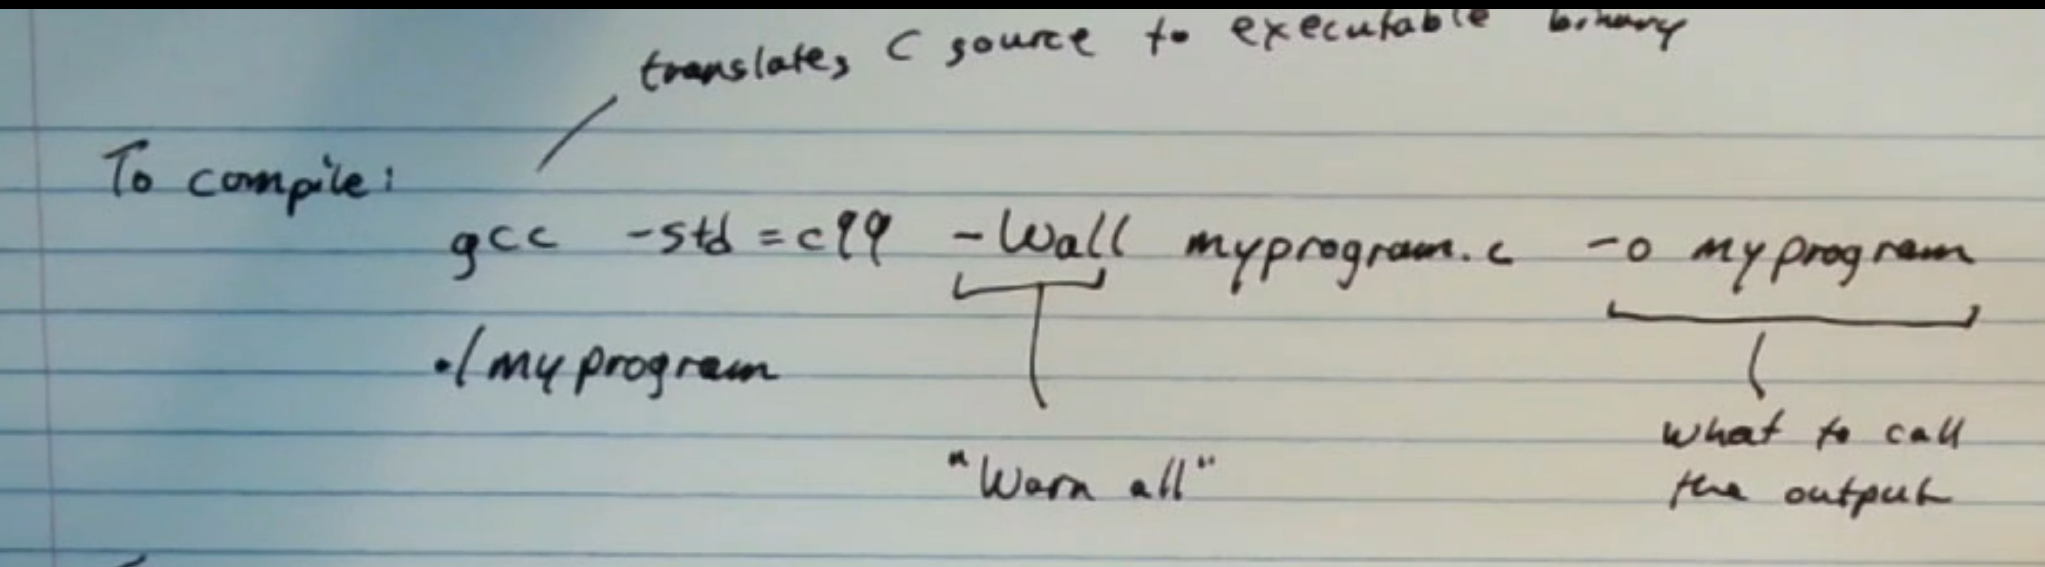 translates C source to executable binary
To compile:
gcc -std=c99 -Wall myprogram.c -o myprogram
./myprogram
"Warn all"
what to call
the output